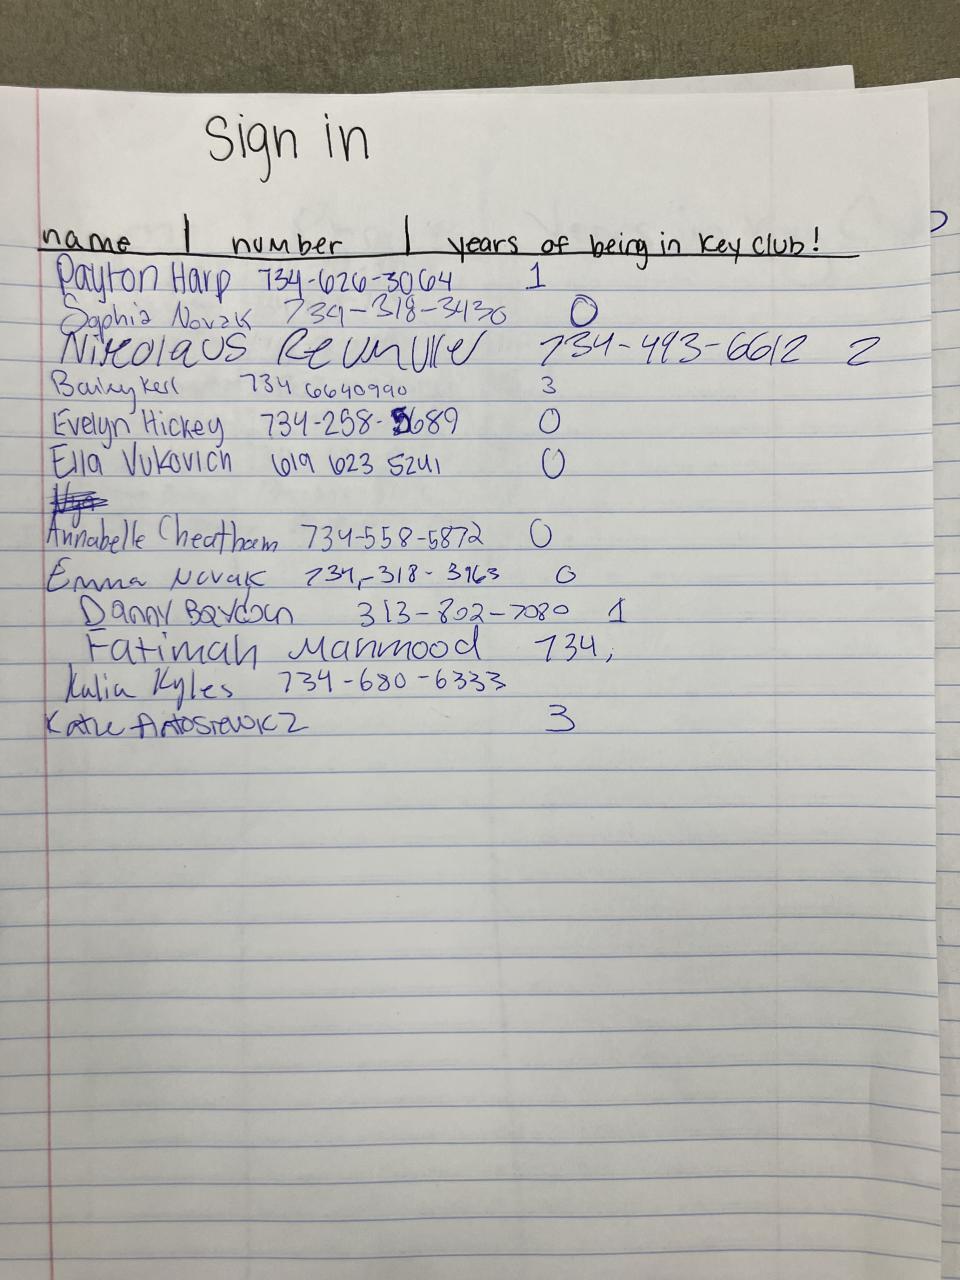 Sign in
name | number | years of being in key club!
Payton Harp 734-626-3064 1
Sophia Novak 734-318-3430 0
Nikolaus 734-493-6612 2
734 6640990 3
Evelyn Hickey 734-258-5689 0
Ella Vukovich 619 623 5241 0
Annabelle Cheatham 734-558-5872 0
Emma Novak 734-318-3963 0
Danny 313-802-7080 1
Fatimah Mahmood 734,
Kalia Kyles 734-680-6333
Katie Antosiewicz 3